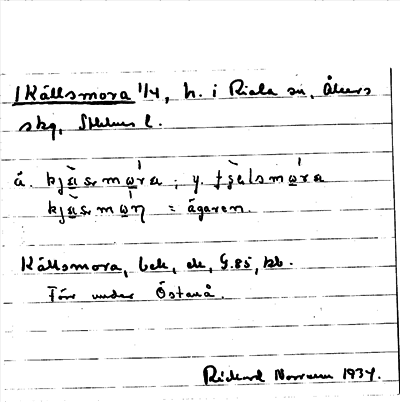 Källsmora 1/4, h. i Riala sn, Åkers
skg, Sthlms l.
ä. kjä̀sₑmώ̲ra ; y. ʃjälsmώ̲ra
kjä̀sₑmώ̲ɳ = ägaren.
Källsmora, bek, ek, G.85, kb.
Förr under Östanå.
Rickard 1934.